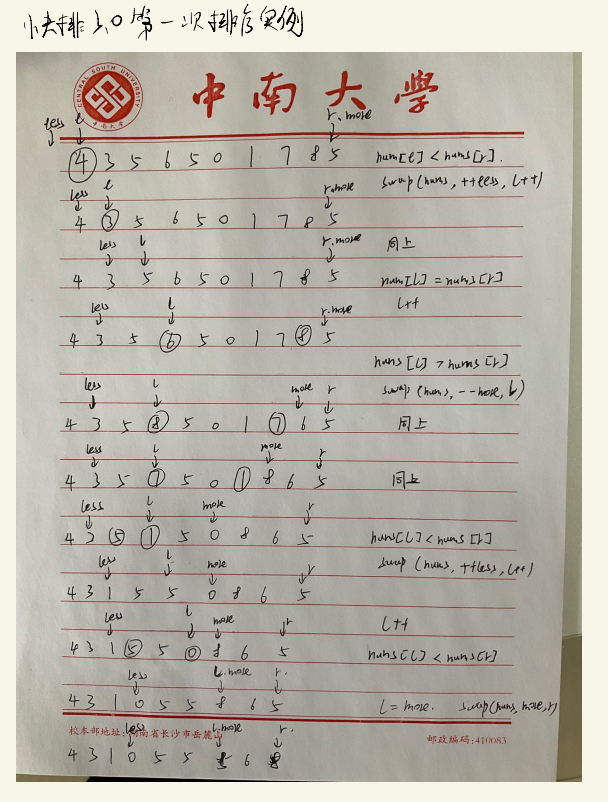 快排3.0第一次排序实例
CENTRAL SOUTH UNIVERSITY
中南大学
中南大学
less l r.more
4 3 5 6 5 0 1 7 8 5 num[l] < nums[r].
less l r.more swap(nums, ++less, l++)
4 3 5 6 5 0 1 7 8 5
less l r.more 同上
4 3 5 6 5 0 1 7 8 5 num[l] = nums[r]
less l r.more l++
4 3 5 6 5 0 1 7 8 5
nums[l] > nums[r]
less l more r swap(nums, --more, l)
4 3 5 8 5 0 1 7 6 5 同上
less l more r
4 3 5 7 5 0 1 8 6 5 同上
less l more r
4 3 5 1 5 0 8 6 5 nums[l] < nums[r]
less l more r swap(nums, ++less, l++)
4 3 1 5 5 0 8 6 5
less l more r l++
4 3 1 5 5 0 8 6 5 nums[l] < nums[r]
less l.more r.
4 3 1 0 5 5 8 6 5 l = more. swap(nums, more, r)
校本部地址:湖南省长沙市岳麓山 邮政编码:410083
less l.more r.
4 3 1 0 5 5 5 6 8